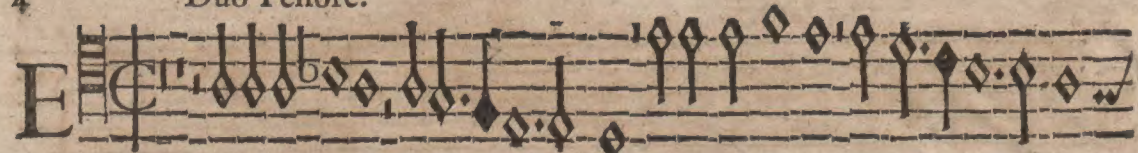 4 Duo Tenore.
E